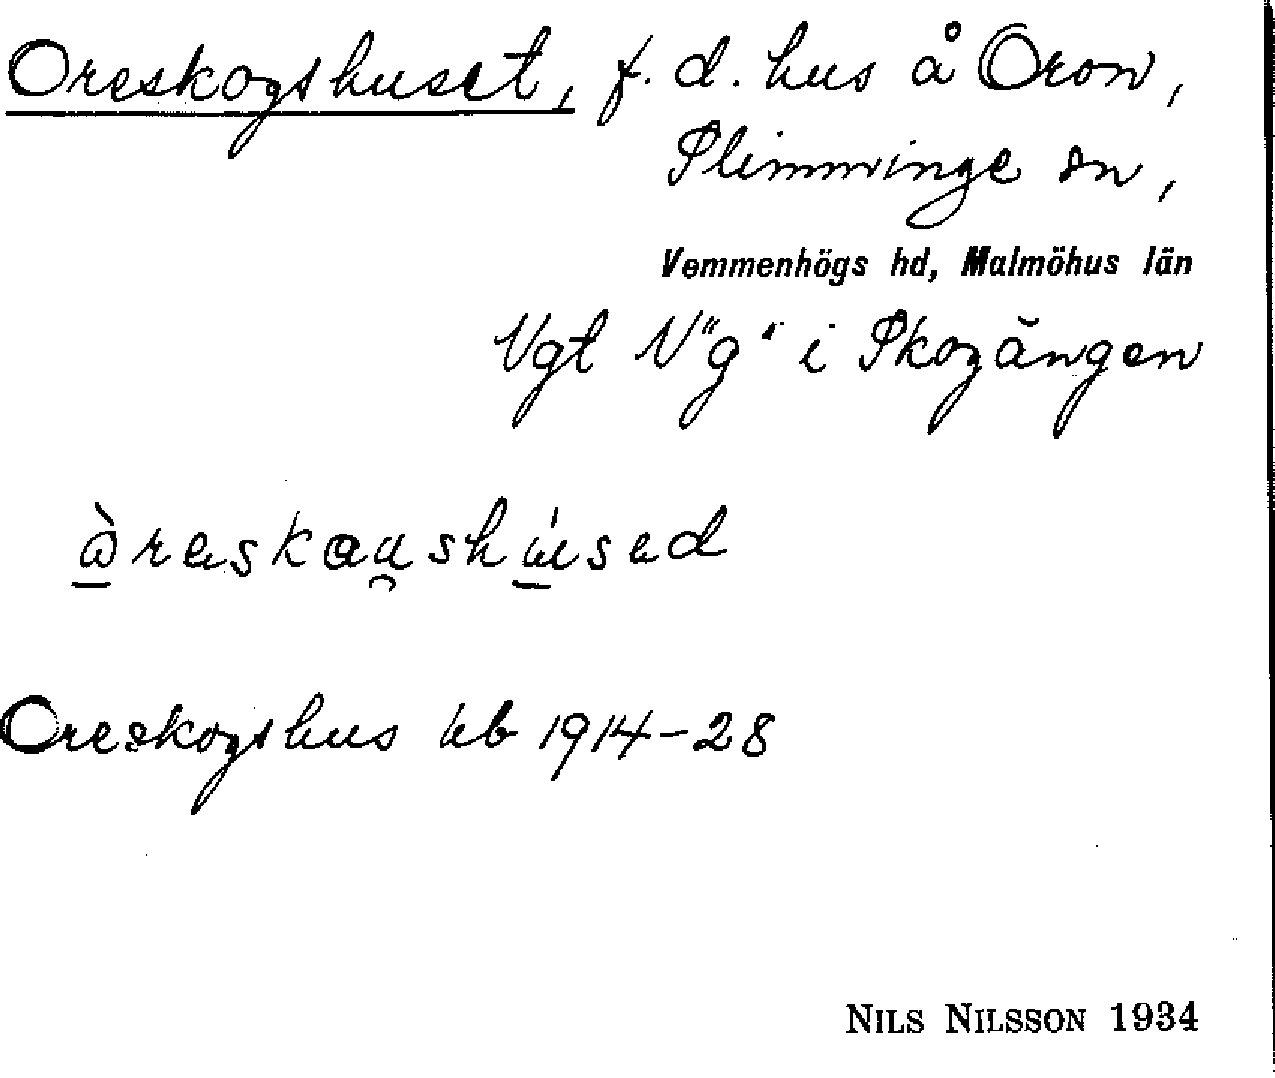 Oreskogshuset, f. d. hus å Oron,
Slimminge sn,
Vemmenhögs hd, Malmöhus län
Vgt N"g" i Skogängen
òreskau̯shúsed
Oreskogshus kb 1914-28
NILS NILSSON 1934